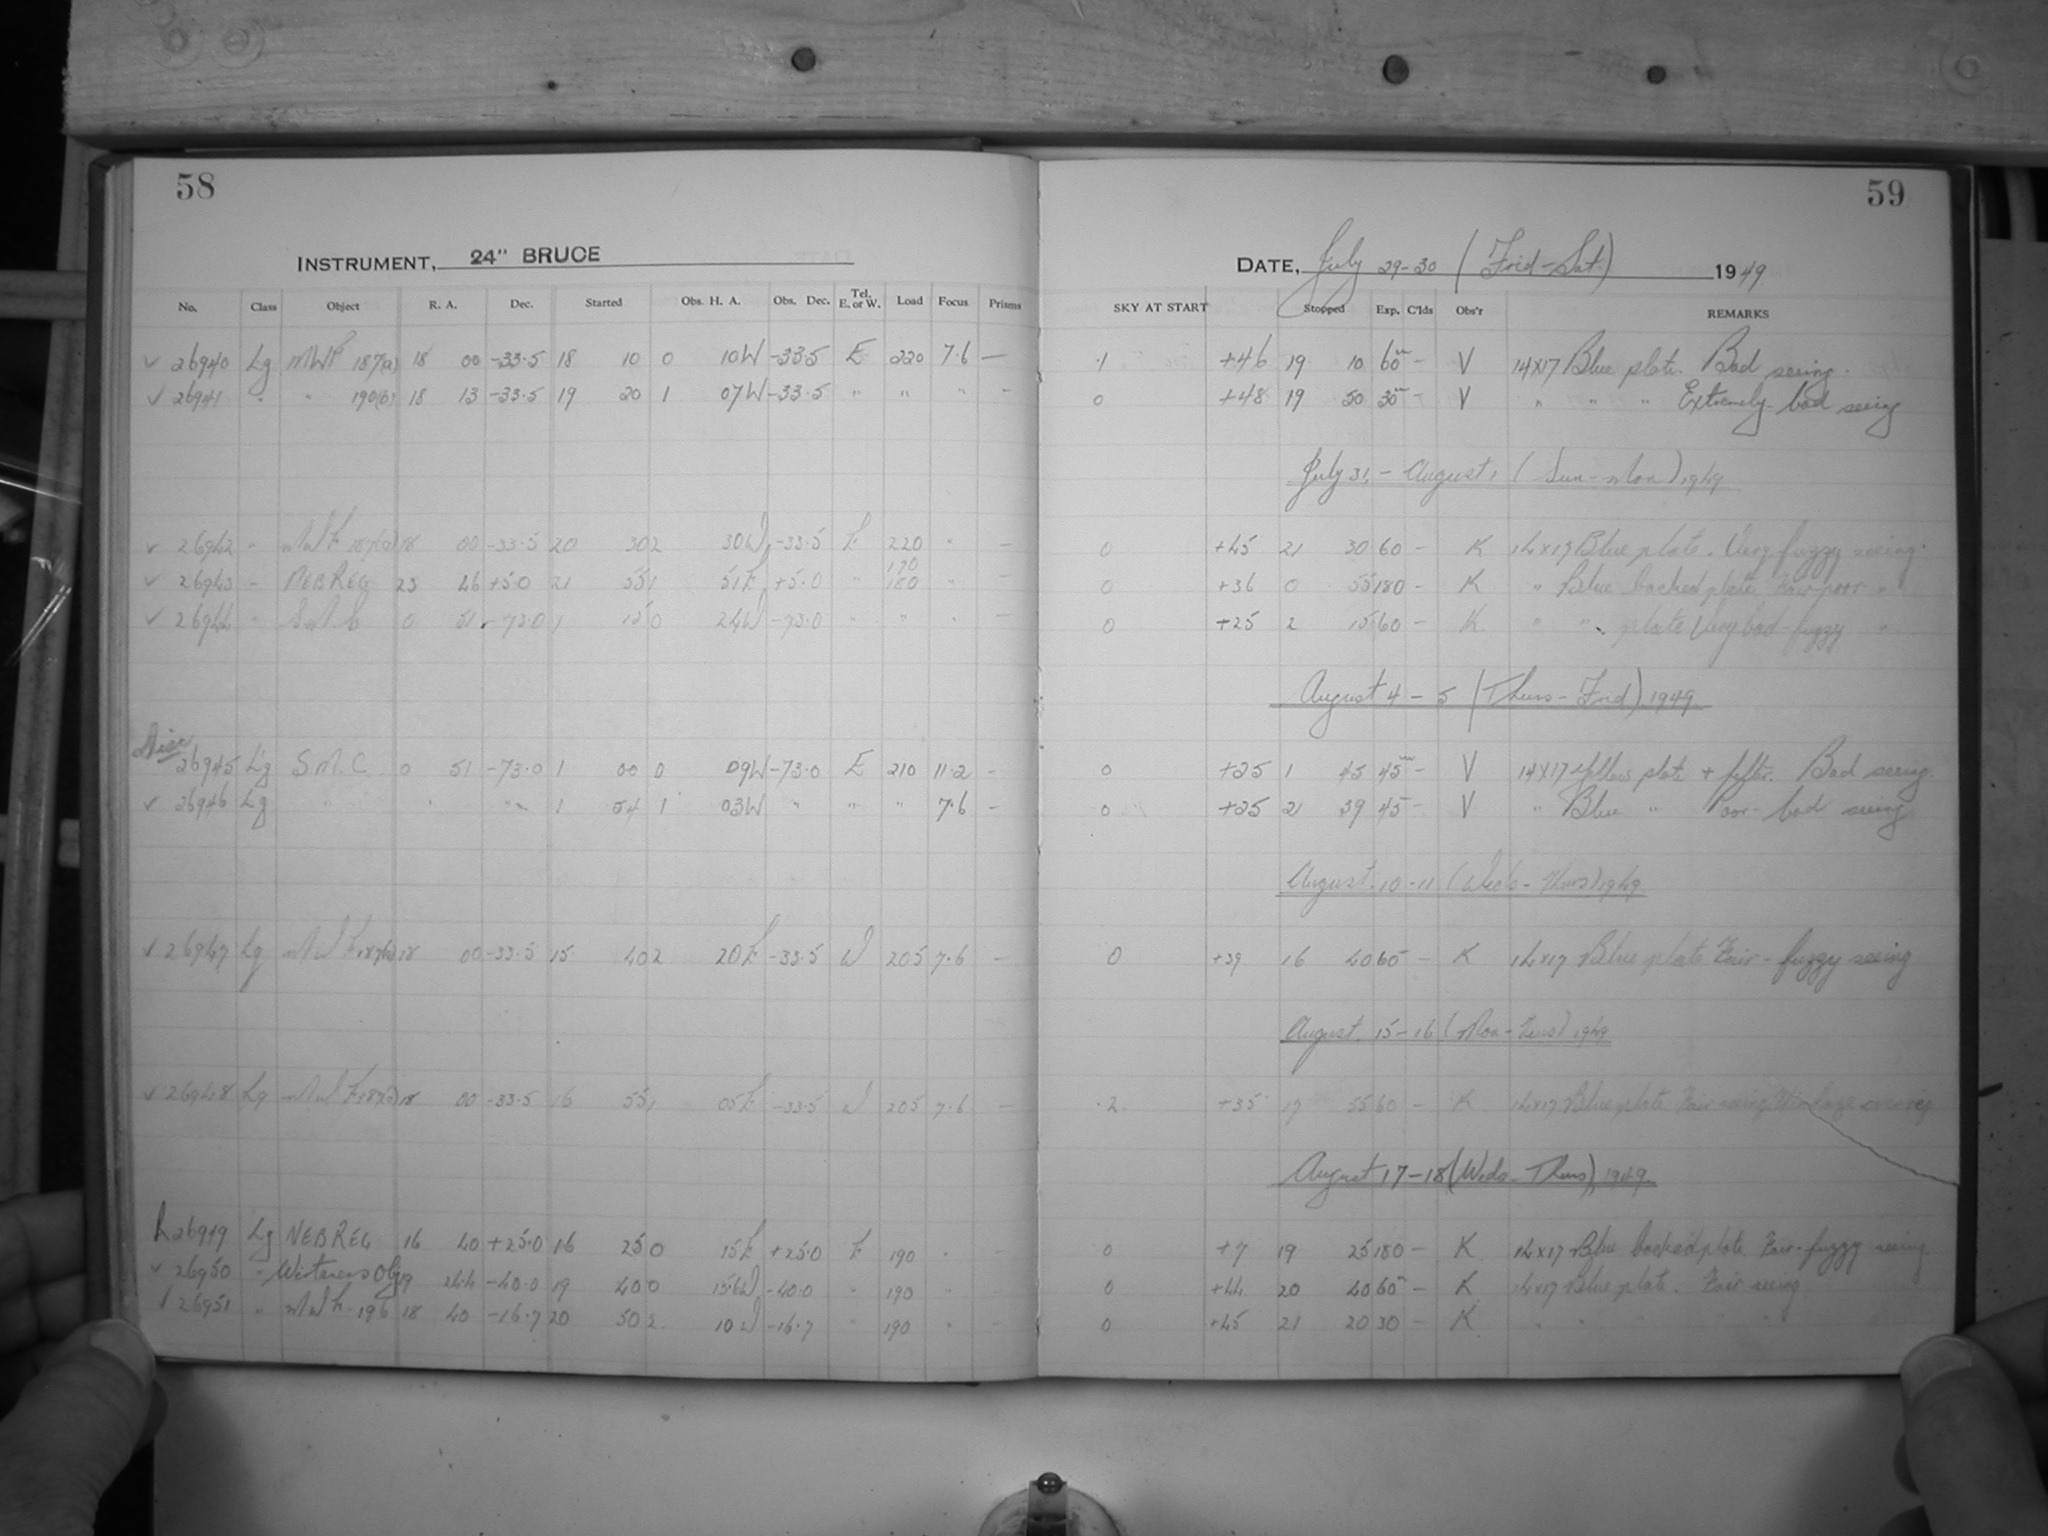 58
INSTRUMENT, 24" BRUCE
No. Class Object R. A. Dec. Started Obs. H. A. Obs. Dec. Tel. E. or W. Load Focus Prisms
✓ 26940 Lg MWF 187(a) 18 00 -33.5 18 10 0 10W -33.5 E 220 7.6 —
✓ 26941 " " 190(b) 18 13 -33.5 19 20 1 07W -33.5 " " " -
✓ 26942 " MWF 187(a) 18 00 -33.5 20 30 2 30W -33.5 E 220 " —
✓ 26943 " NEBREG 23 46 +5.0 21 55 1 51E +5.0 " 170 180 " —
✓ 26944 " SMC 0 51 -73.0 1 15 0 24W -73.0 " " " —
Disc
26945 Lg S.M.C. 0 51 -73.0 1 00 0 09W -73.0 E 210 11.2 -
✓ 26946 Lg " " " 1 54 1 03W " " " 7.6 —
✓ 26947 Lg MWF 18 00 -33.5 15 40 2 20E -33.5 W 205 7.6 —
✓ 26948 Lg MWF 18 00 -33.5 16 55 1 05E -33.5 W 205 7.6 —
26949 Lg NEBREG 16 40 +25.0 16 25 0 15E +25.0 E 190 " -
✓ 26950 " Obj 19 24.4 -40.0 19 40 0 15.6W -40.0 190 "
26951 " MWF 196 18 40 -16.7 20 50 2 10W -16.7 " 190 " —
59
DATE, July 29-30 (Frid-Sat.) 1949
SKY AT START Stopped Exp. C'lds Obs'r REMARKS
.1 +46 19 10 60m - V 14x17 Blue plate. Bad seeing.
0 +48 19 50 30m - V " " " Extremely bad seeing
July 31, - August 1 (Sun-Mon) 1949
0 +45 21 30 60 - K 14x17 Blue plate. Very fuzzy seeing.
0 +36 0 55 180 - K " Blue backed plate. Fair-poor "
0 +25 2 15 60 - K " " plate Very bad-fuzzy "
August 4 - 5 (Thurs-Frid) 1949
0 +25 1 45 45m - V 14x17 Yellow plate + fylter. Bad seeing.
0 +25 21 39 45 - V " Blue " Poor-bad seeing
August 10-11 (Weds-Thurs) 1949
0 +39 16 40 60 - K 14x17 Blue plate Fair-fuzzy seeing
August 15-16 (Mon-Tues) 1949
.2 +35 17 55 60 - K 14x17 Blue plate Fair seeing
August 17-18 (Weds-Thurs), 1949
0 +7 19 25 180 - K 14x17 Blue backed plate Fair-fuzzy seeing
0 +44 20 40 60 - K 14x17 Blue plate. Fair seeing
0 +45 21 20 30 - K " " " "